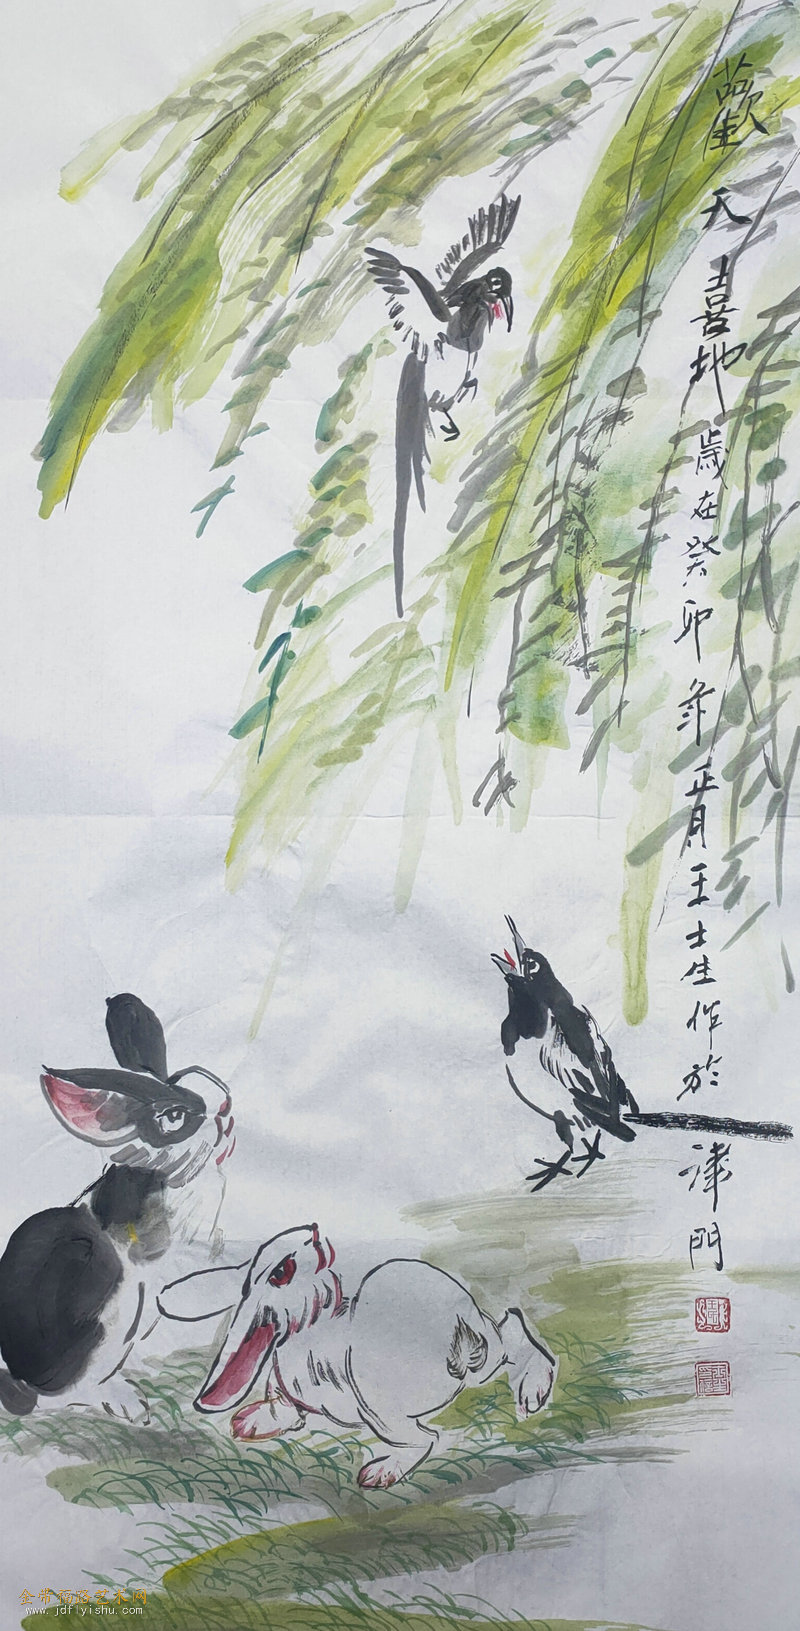 歡天喜地歲在癸卯年正月王士生作於津門
金带福路艺术网
www.jdflyishu.com